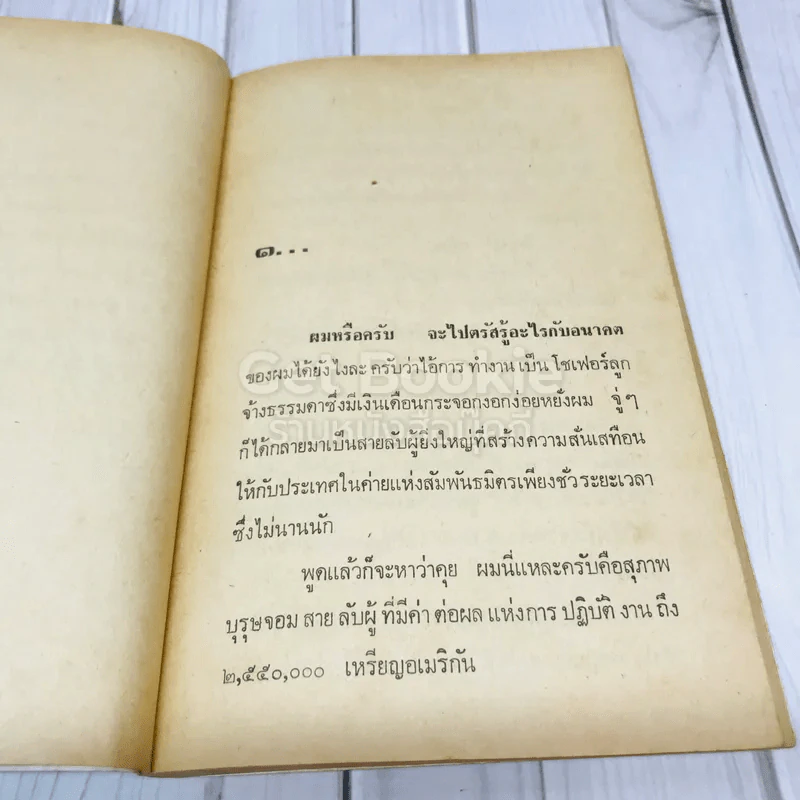 ๑...
ผมหรือครับ จะไปตรัสรู้อะไรกับอนาคต
ของผมได้ยังไงละ ครับว่าไอ้การ ทำงาน เป็น โชเฟอร์ลูก
จ้างธรรมดาซึ่งมีเงินเดือนกระจอกงอกง่อยหยั่งผม จู่ๆ
ก็ได้กลายมาเป็นสายลับผู้ยิ่งใหญ่ที่สร้างความสั่นเสทือน
ให้กับประเทศในค่ายแห่งสัมพันธมิตรเพียงชั่วระยะเวลา
ซึ่งไม่นานนัก
พูดแล้วก็จะหาว่าคุย ผมนี่แหละครับคือสุภาพ
บุรุษจอม สาย ลับผู้ ที่มีค่า ต่อผล แห่งการ ปฏิบัติ งาน ถึง
๒,๕๕๐,๐๐๐ เหรียญอเมริกัน
Get Bookie
ร้านหนังสือมุคคี